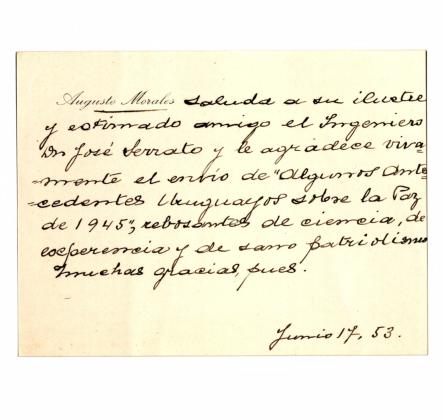 Augusto Morales saluda a su ilustre
y estimado amigo el Ingeniero
Dn José Serrato y le agradece viva-
-mente el envío de "Algunos Ante-
-cedentes Uruguayos sobre la Paz
de 1945", rebosantes de ciencia, de
experencia y de sano patriotismo
Muchas gracias, pues.
Junio 17, 53.